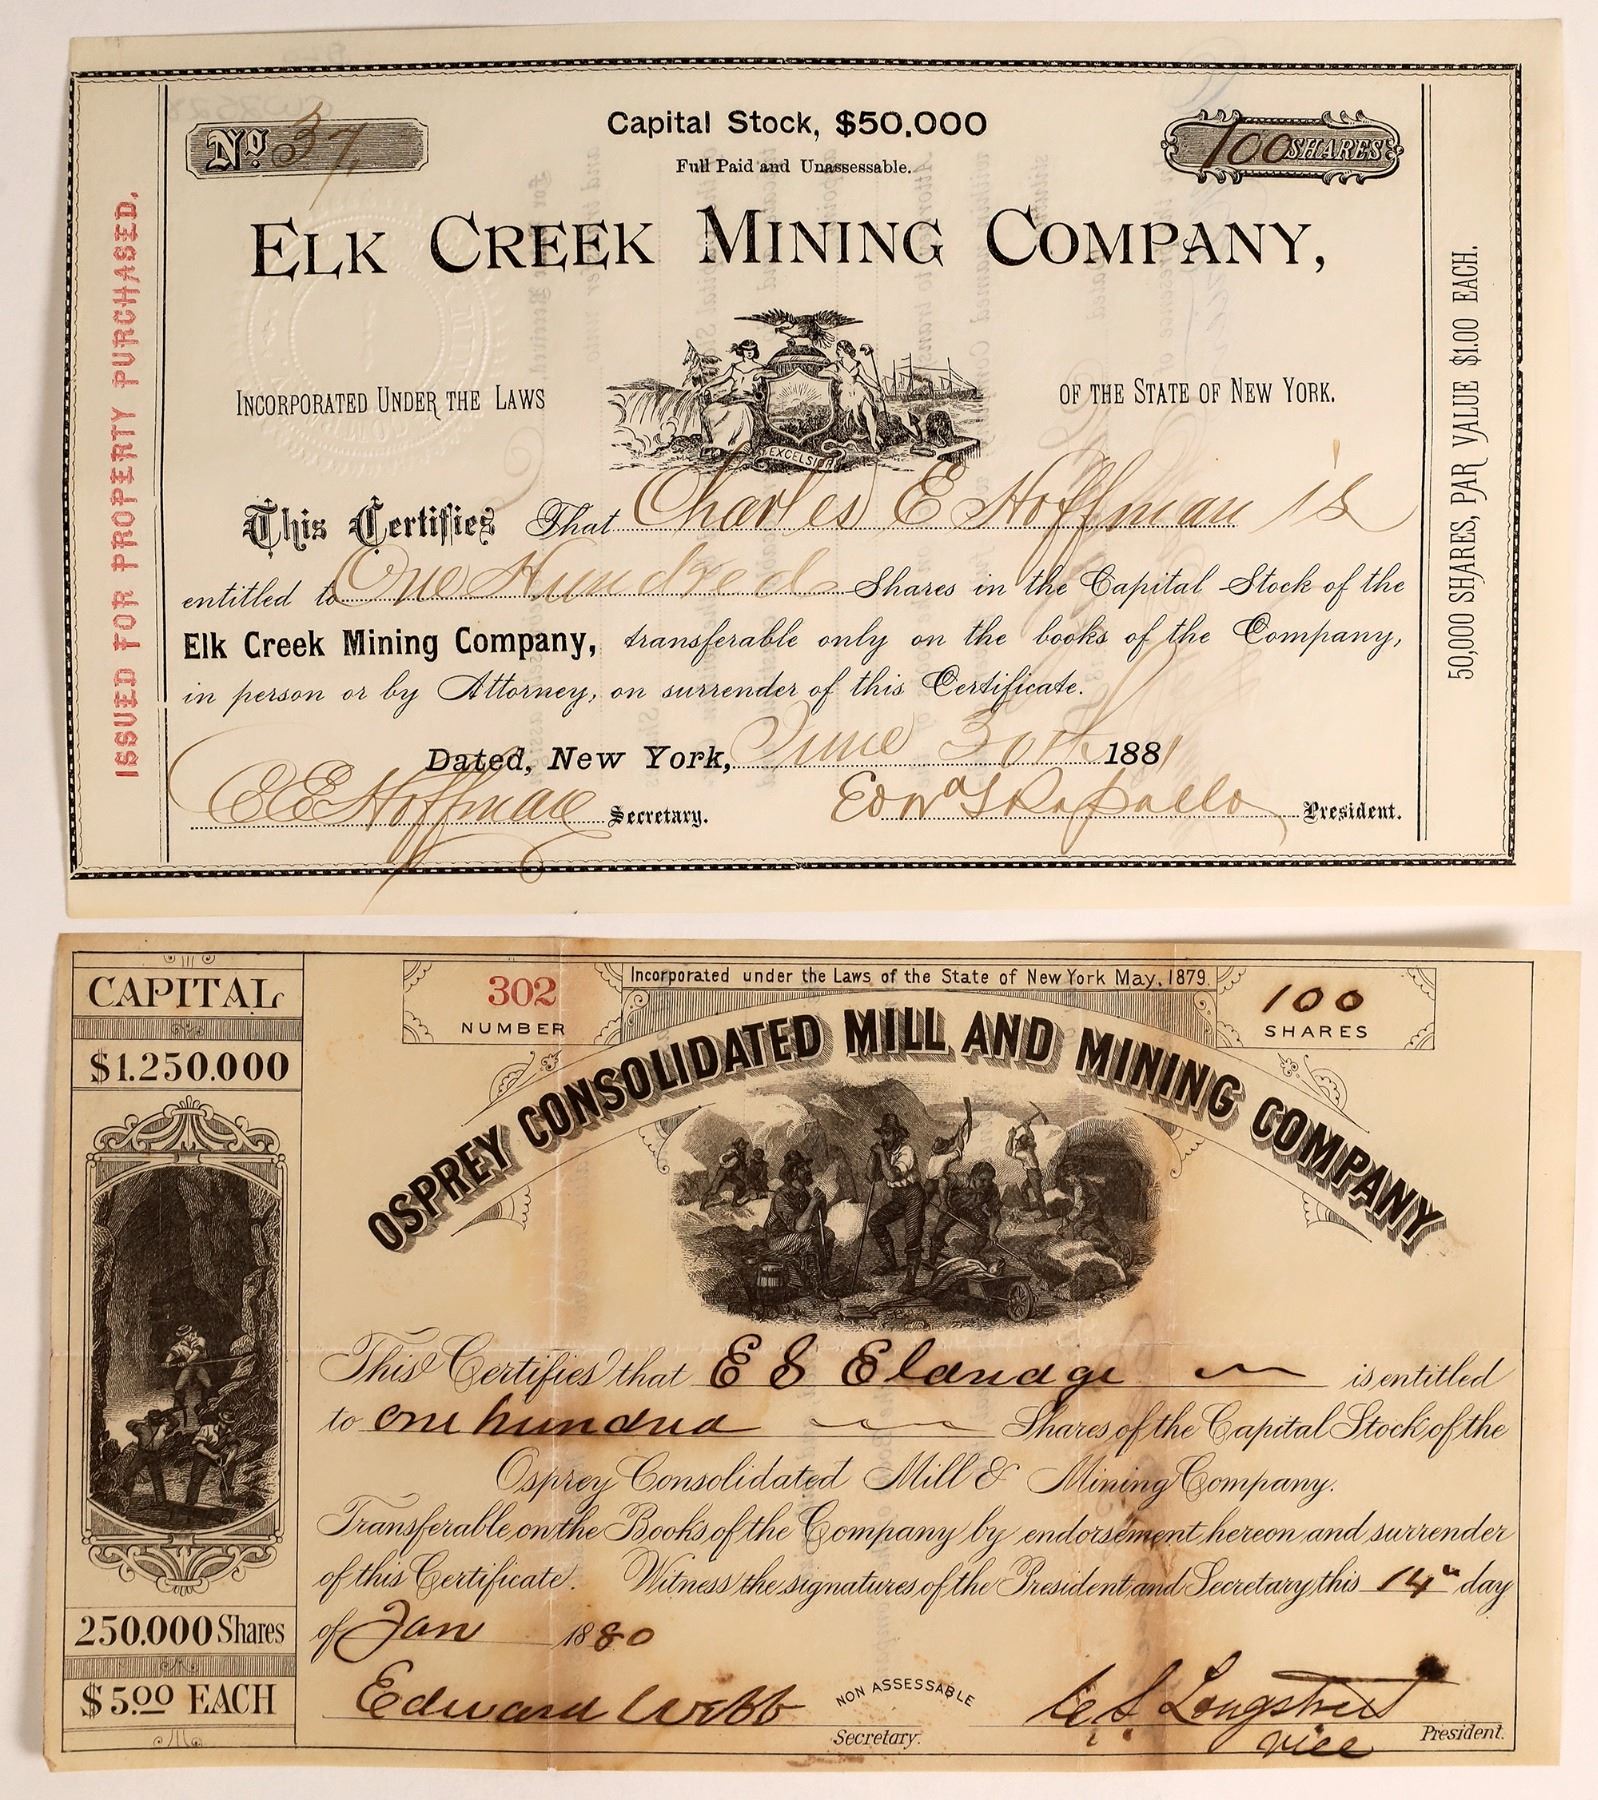 No 37
Capital Stock, $50.000
100 SHARES
Full Paid and Unassessable.
ELK CREEK MINING COMPANY,
INCORPORATED UNDER THE LAWS
OF THE STATE OF NEW YORK.
EXCELSIOR
This Certifies That Charles E Hoffman is
entitled to One Hundred Shares in the Capital Stock of the
Elk Creek Mining Company, transferable only on the books of the Company,
in person or by Attorney, on surrender of this Certificate.
Dated, New York, June 30th 1881
C E Hoffman Secretary.
President.
ISSUED FOR PROPERTY PURCHASED.
50,000 SHARES, PAR VALUE $1.00 EACH.
CAPITAL
$1.250.000
250.000 Shares
$5.00 EACH
302
NUMBER
Incorporated under the Laws of the State of New York May, 1879.
100
SHARES
OSPREY CONSOLIDATED MILL AND MINING COMPANY
This Certifies that E S Eldridge is entitled
to one hundred Shares of the Capital Stock of the
Osprey Consolidated Mill & Mining Company.
Transferable on the Books of the Company by endorsement hereon and surrender
of this Certificate. Witness the signatures of the President and Secretary this 14th day
of Jan 1880
Edward Webb
NON ASSESSABLE
Longstreet
Secretary.
Vice President.